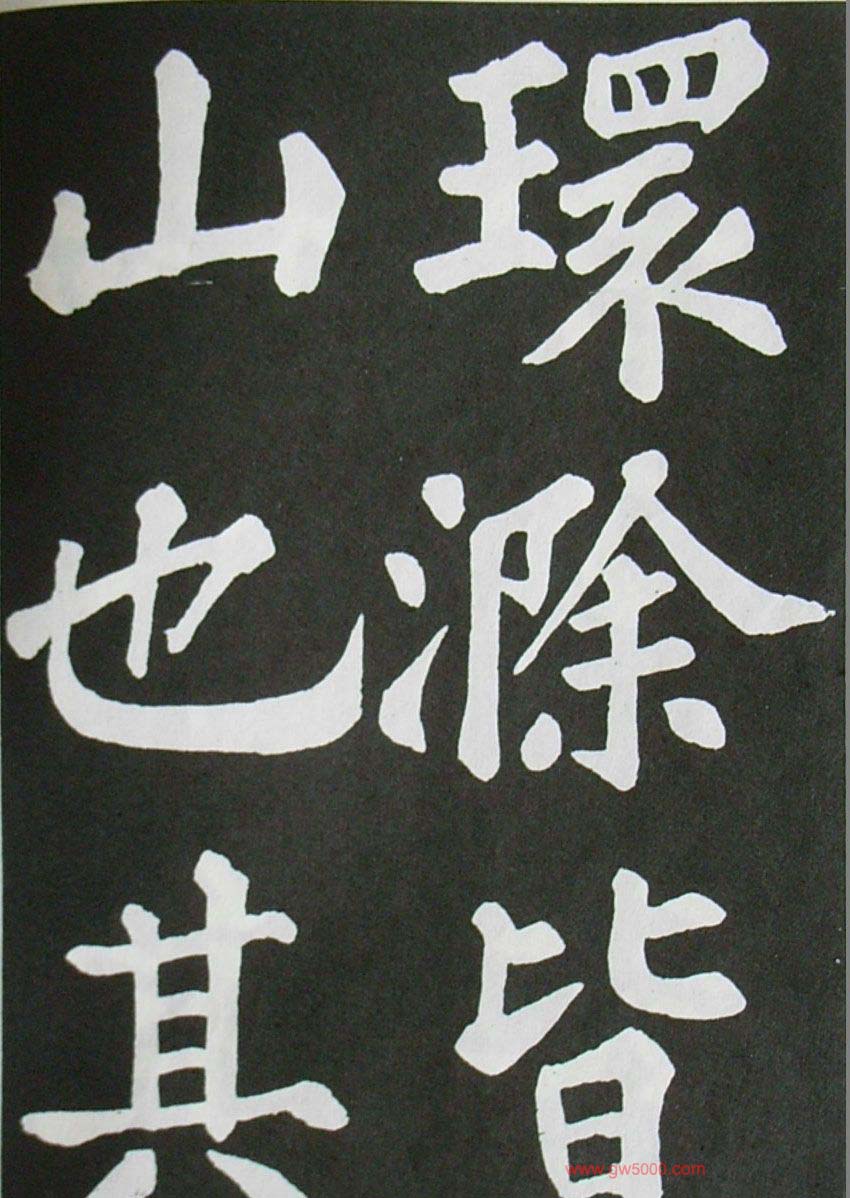 環滁皆
山也其
www.gw5000.com